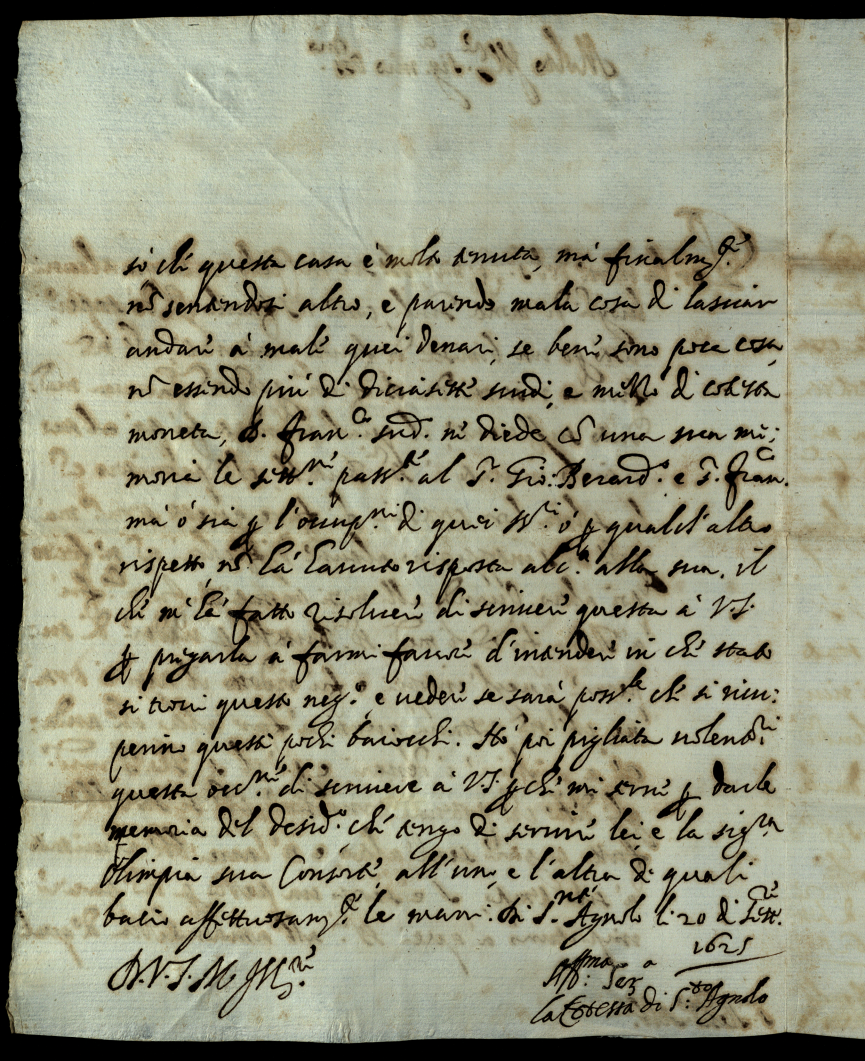 sò che questa casa è molto tenuta, mà finalm.te
nõ sentendosi altro, e parendo mala cosa di lasciar
andare à male quei denari, se bene sono poca cosa,
nõ essendo più di diciasette scudi, e mezzo di cotesta
moneta, D. Fran.co sud. ne diede cõ una sua me:
moria le sett.ne pass.te al S.r Gio: Berard.o e S. Fran.co
mà ò sia ꝑ l'occup.ni di quei SS.ri ò ꝑ qualch'altro
rispetto nõ hà havuto risposta alc.a alla sua, il
che m'hà fatto risolvere di scrivere questa à V.S.
ꝑ pregarla à farmi favore d'intendere in che stato
si trovi questo neg.o e vedere se sarà poss.le che si ricu:
perino questi pochi baiocchi. Hò poi pigliata volent.ri
questa occ.ne di scrivere à V.S. ꝑche mi serve ꝑ darle
memoria del desid.o che tengo di servire lei, e la sig.ra
Olimpia sua Consorte, all'uno, e l'altra di quali
bacio affettuosam.te le mani. Di S.nt' Agnolo li 20 di Sett.re
1625
D.V.S. M. Ill.re
Aff.ma Ser.a
la Cõtessa di S.to Agnolo